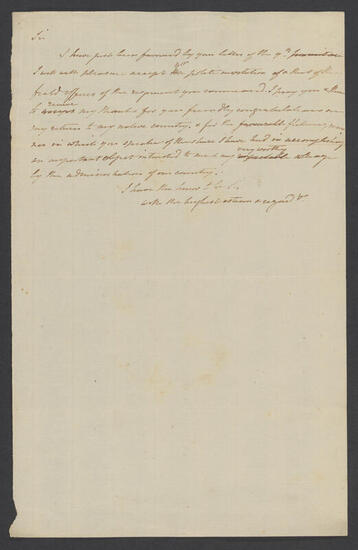 Sir
I have just been favored by your letter of the 9th
I will with pleasure accept the polite invitation of
field officers of the regiment you command. I pray you
to receive my thanks for your friendly congratulations on
my return to my native country, & for the favorable
in which you speak of the share I have had in accomplishing
an important object intrusted to me & my very worthy colleague
by the administration of our country.
I have the honor to be &.
with the highest esteem & regard &